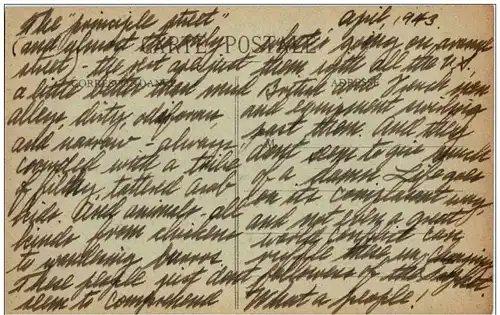 The "principle street"
(and almost the only
street - the rest are just
a little better than mud
alleys, dirty, odiforous,
and narrow - always
crowded with a tribe
of filthy, tattered arab
kids. And animals - all
kinds from chickens
to wandering burros
These people just dont
seem to comprehend
April, 1943.
CARTE POSTALE
CORRESPONDANCE
ADRESSE
what's going on around
them with all the U.S.
British and French men
and equipment swirling
past them. And they
dont seem to give much
of a damn. Life goes
on its complacent way
and not even a great
world conflict can
ruffle these
followers of the
What a people!